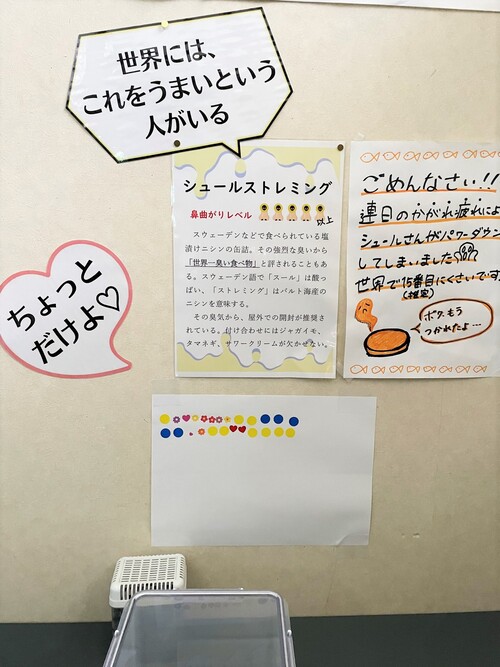 世界には、
これをうまいという
人がいる
シュールストレミング
鼻曲がりレベル
以上
スウェーデンなどで食べられている塩
漬けニシンの缶詰。その強烈な臭いから
「世界一臭い食べ物」と評されることもあ
る。スウェーデン語で「スール」は酸っ
ぱい、「ストレミング」はバルト海産の
ニシンを意味する。
その臭気から、屋外での開封が推奨さ
れている。付け合わせにはジャガイモ、
タマネギ、サワークリームが欠かせない。
ごめんなさい!!
連日のかがれ疲れによ
シュールさんがパワーダウン
してしまいました
世界で15番目にくさいです
(推定)
ボク、もう
つかれたよ…
ちょっと
だけよ♡